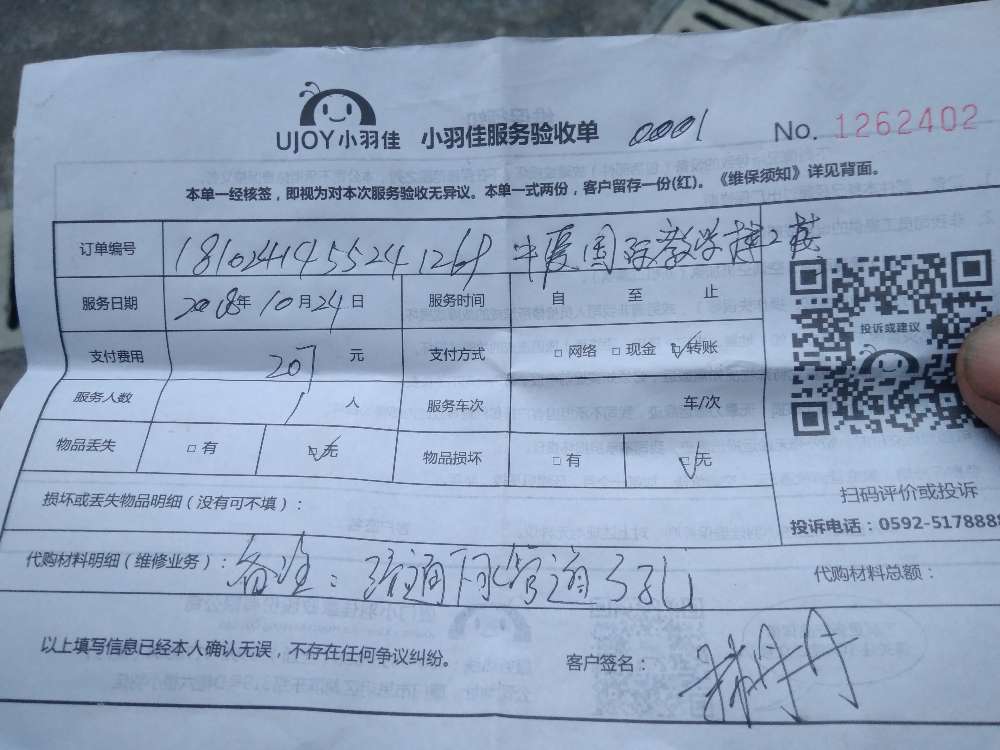 UJOY小羽佳 小羽佳服务验收单 0001 No. 1262402
本单一经核签，即视为对本次服务验收无异议。本单一式两份，客户留存一份(红)。《维保须知》详见背面。
订单编号 1810241455241268 中爱国际教学楼2楼
服务日期 2018年10月24日 服务时间 自 至 止
投诉或建议
支付费用 207 元 支付方式 □网络 □现金 ☑转账
服务人数 1 人 服务车次 车/次
物品丢失 □有 ☑无 物品损坏 □有 ☑无
扫码评价或投诉
损坏或丢失物品明细（没有可不填）：
投诉电话：0592-5178888
代购材料明细（维修业务）： 备注：疏通下水管道3孔 代购材料总额：
以上填写信息已经本人确认无误，不存在任何争议纠纷。 客户签名： 丹丹